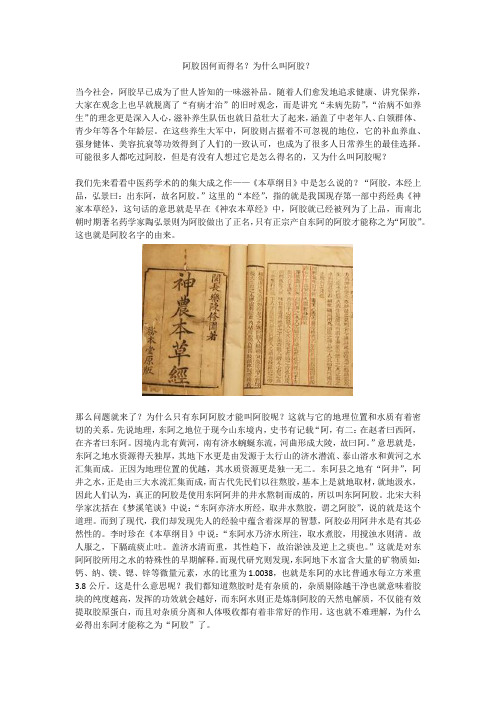 阿胶因何而得名？为什么叫阿胶？
当今社会，阿胶早已成为了世人皆知的一味滋补品。随着人们愈发地追求健康、讲究保养，
大家在观念上也早就脱离了“有病才治”的旧时观念，而是讲究“未病先防”，“治病不如养
生”的理念更是深入人心，滋补养生队伍也就日益壮大了起来，涵盖了中老年人、白领群体、
青少年等各个年龄层。在这些养生大军中，阿胶则占据着不可忽视的地位，它的补血养血、
强身健体、美容抗衰等功效得到了人们的一致认可，也成为了很多人日常养生的最佳选择。
可能很多人都吃过阿胶，但是有没有人想过它是怎么得名的，又为什么叫阿胶呢？
我们先来看看中医药学术的的集大成之作——《本草纲目》中是怎么说的？“阿胶，本经上
品，弘景曰：出东阿，故名阿胶。”这里的“本经”，指的就是我国现存第一部中药经典《神
家本草经》，这句话的意思就是早在《神农本草经》中，阿胶就已经被列为了上品，而南北
朝时期著名药学家陶弘景则为阿胶做出了正名，只有正宗产自东阿的阿胶才能称之为“阿胶”。
这也就是阿胶名字的由来。
閩長樂陳修園著
神農本草經
務本堂原版
那么问题就来了？为什么只有东阿阿胶才能叫阿胶呢？这就与它的地理位置和水质有着密
切的关系。先说地理，东阿之地位于现今山东境内，史书有记载“阿，有二：在赵者曰西阿，
在齐者曰东阿。因境内北有黄河，南有济水蜿蜒东流，河曲形成大陵，故曰阿。”意思就是，
东阿之地水资源得天独厚，其地下水更是由发源于太行山的济水潜流、泰山溶水和黄河之水
汇集而成。正因为地理位置的优越，其水质资源更是独一无二。东阿县之地有“阿井”，阿
井之水，正是由三大水流汇集而成，而古代先民们以往熬胶，基本上是就地取材，就地汲水，
因此人们认为，真正的阿胶是使用东阿阿井的井水熬制而成的，所以叫东阿阿胶。北宋大科
学家沈括在《梦溪笔谈》中说：“东阿亦济水所经，取井水熬胶，谓之阿胶”，说的就是这个
道理。而到了现代，我们却发现先人的经验中蕴含着深厚的智慧，阿胶必用阿井水是有其必
然性的。李时珍在《本草纲目》中说：“东阿水乃济水所注，取水煮胶，用搅浊水则清。故
人服之，下膈疏痰止吐。盖济水清而重，其性趋下，故治淤浊及逆上之痰也。”这就是对东
阿阿胶所用之水的特殊性的早期解释。而现代研究则发现，东阿地下水富含大量的矿物质如：
钙、纳、镁、锶、锌等微量元素，水的比重为 1.0038，也就是东阿的水比普通水每立方米重
3.8 公斤。这是什么意思呢？我们都知道熬胶时是有杂质的，杂质剔除越干净也就意味着胶
块的纯度越高，发挥的功效就会越好，而东阿水则正是炼制阿胶的天然电解质，不仅能有效
提取胶原蛋白，而且对杂质分离和人体吸收都有着非常好的作用。这也就不难理解，为什么
必得出东阿才能称之为“阿胶”了。